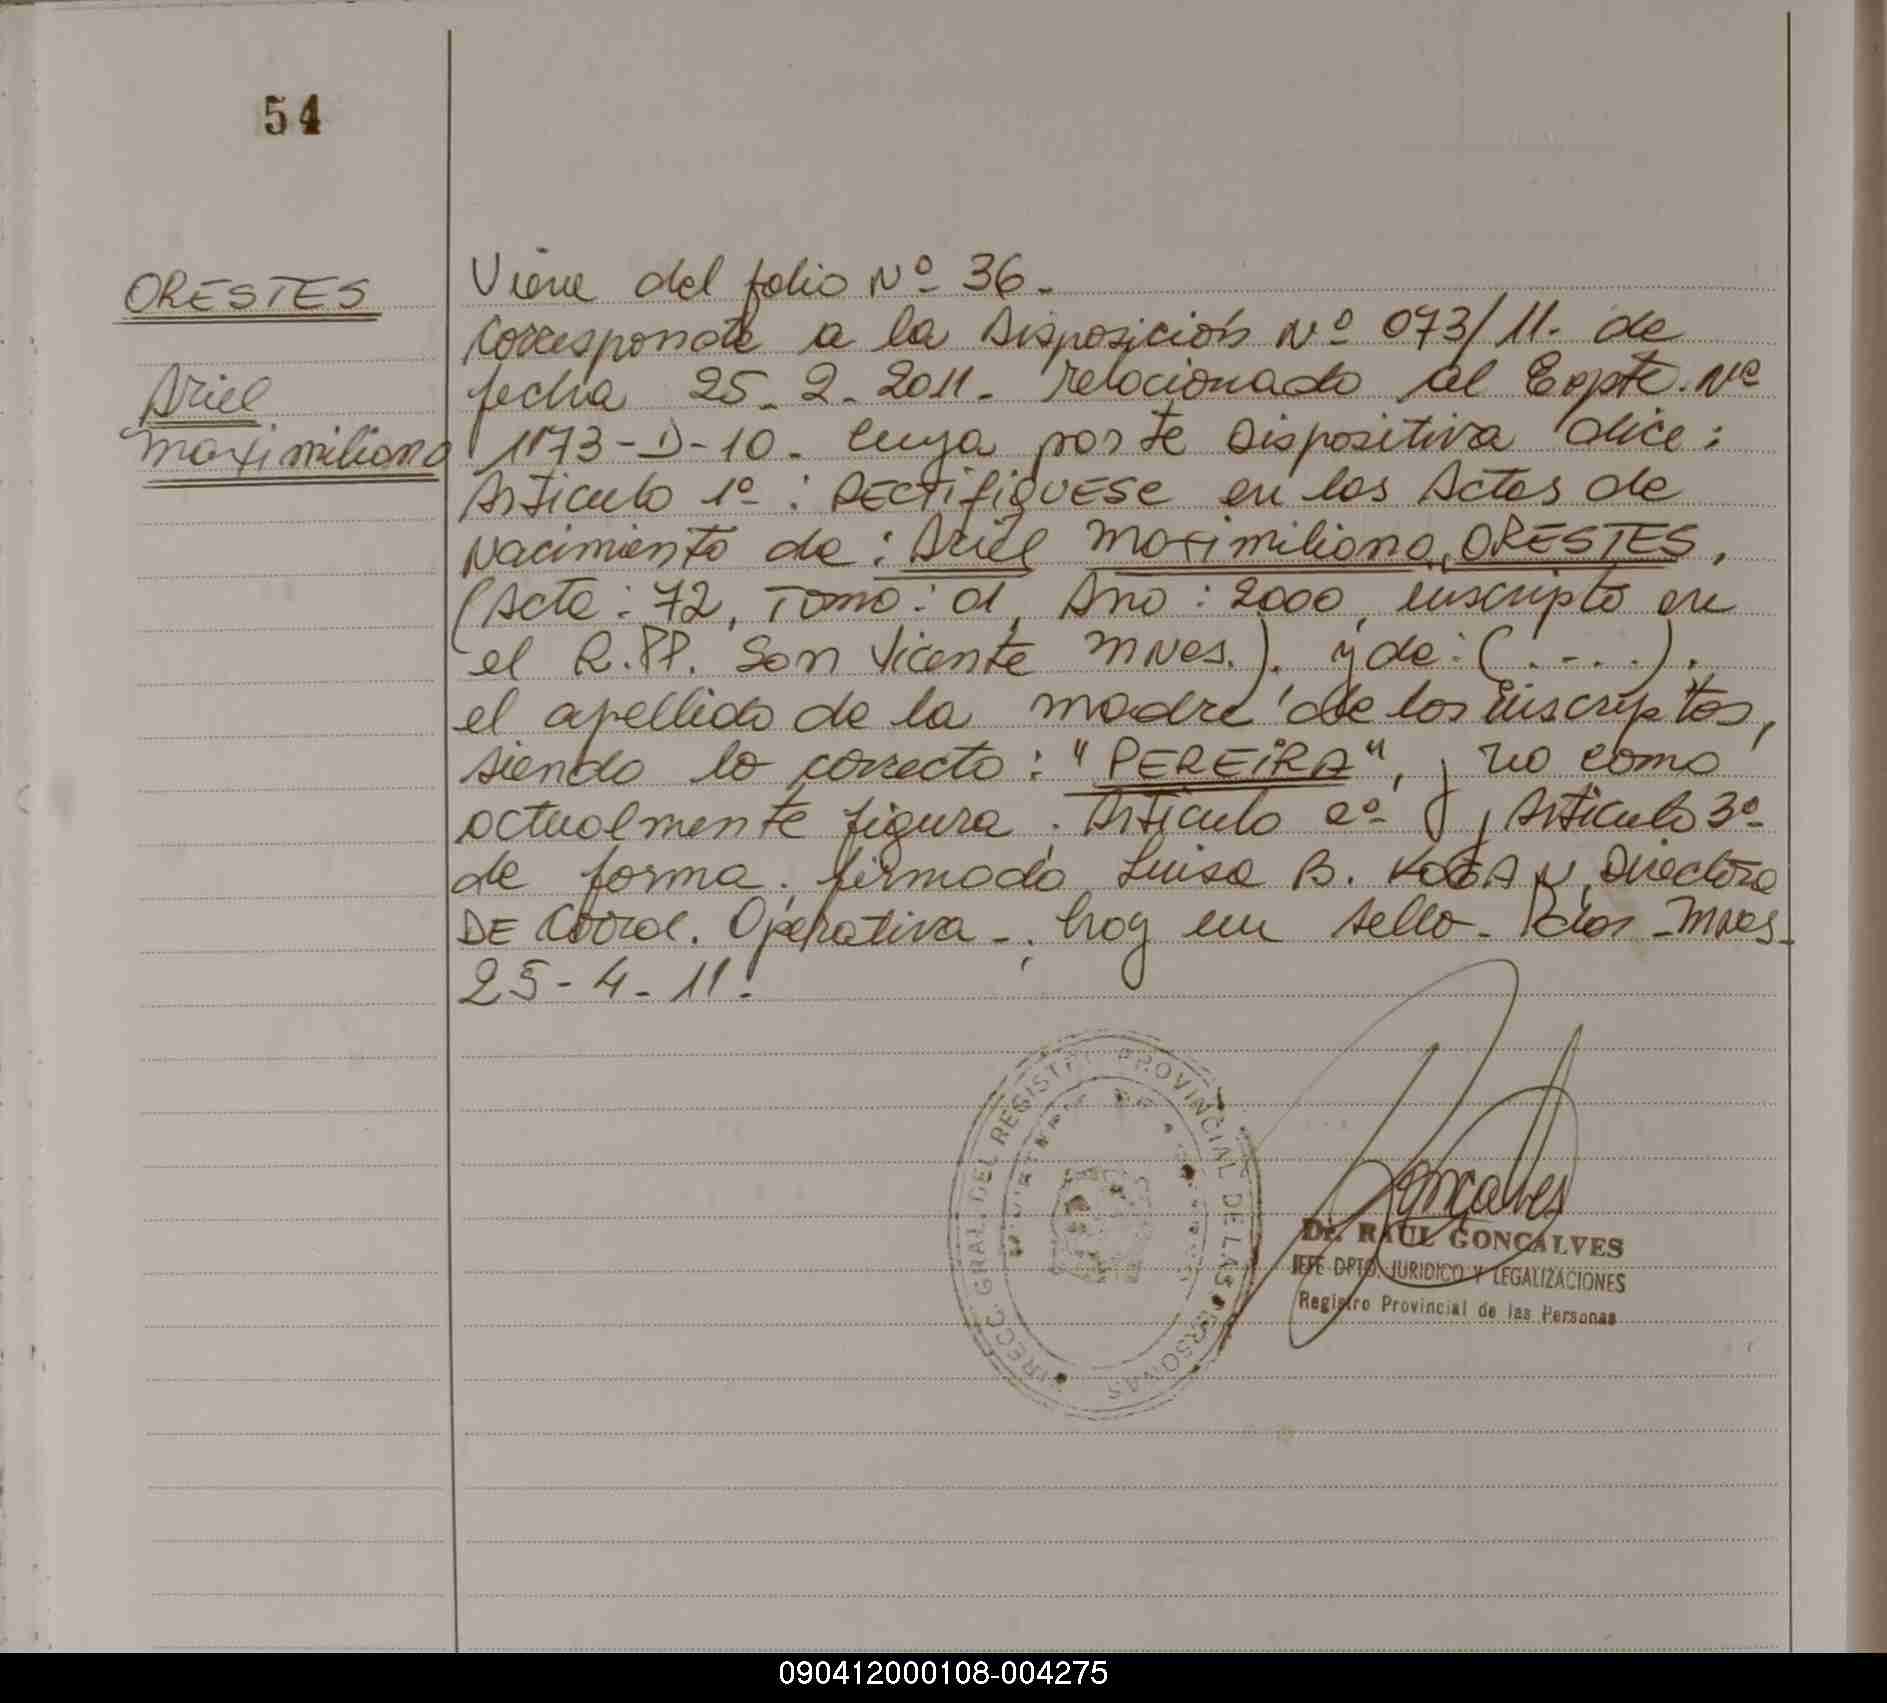 54
ORESTES
Ariel
Maximiliano
Viene del folio Nº 36.
Corresponde a la Disposición Nº 073/11. de
fecha 25-2-2011. relacionado al Expte. Nº
1173-D-10. cuya parte Dispositiva dice:
Artículo 1º: RECTIFIQUESE en las Actas de
Nacimiento de: Ariel Maximiliano, ORESTES,
(Acta: 72, Tomo: 01, Año: 2000, inscripto en
el R.PP. San Vicente Mnes.), y de: (.-..).
el apellido de la madre de los inscriptos,
siendo lo correcto: "PEREIRA", y no como
actualmente figura. Artículo 2º y Artículo 3º
de forma. firmado Luisa B. KOGAN, Directora
DE Coord. Operativa-. hay un sello- Pdas-Mnes-
25-4-11.
DIRECC. GRAL. DEL REGISTRO PROVINCIAL DE LAS PERSONAS
Goncalves
Dr. RAUL GONCALVES
JEFE DPTO. JURIDICO Y LEGALIZACIONES
Registro Provincial de las Personas
090412000108-004275